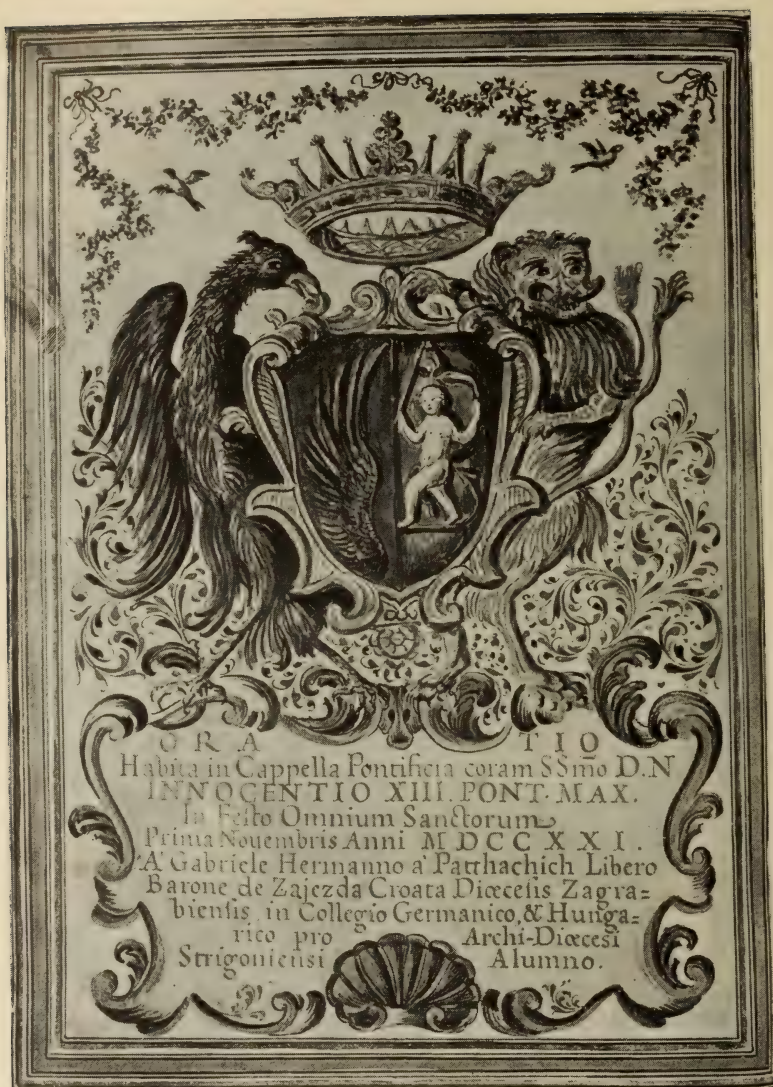 ORA TIO
Habita in Cappella Pontificia coram SSmo D.N
INNOCENTIO XIII. PONT. MAX.
In Festo Omnium Sanctorum
Prima Nouembris Anni MDCCXXI.
A' Gabriele Hermanno a' Patthachich Libero
Barone de Zajezda Croata Diœcesis Zagra=
biensis, in Collegio Germanico, & Hunga=
rico pro Archi-Diœcesi
Strigoniensi Alumno.